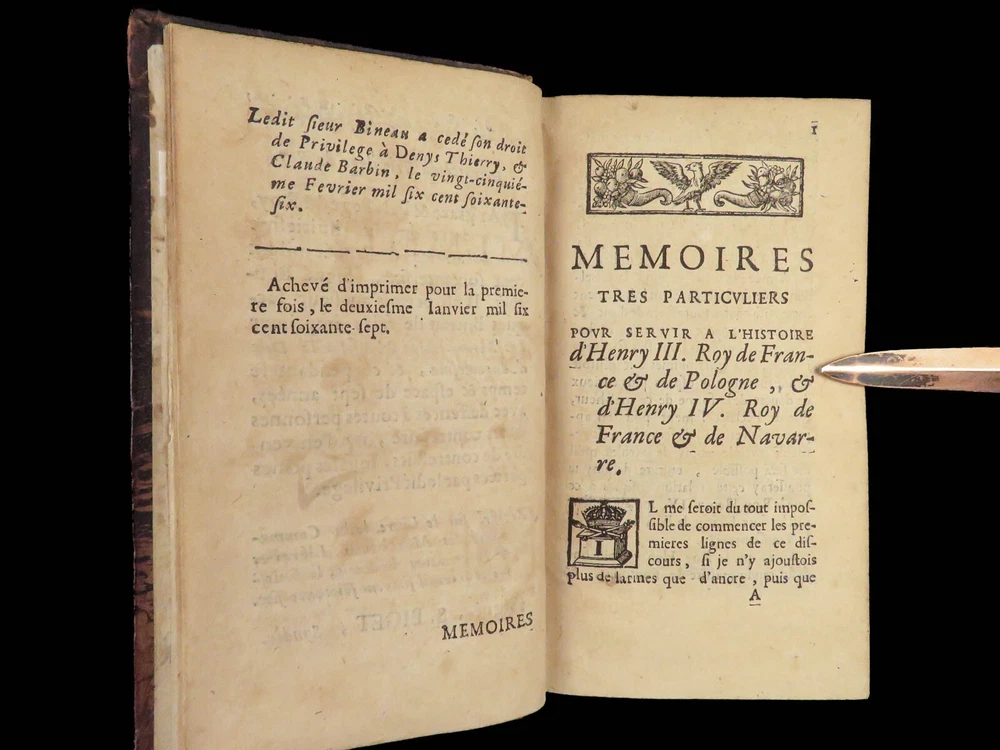 Ledit ſieur Bineau a cedé ſon droit
de Privilege à Denys Thierry, &
Claude Barbin, le vingt-cinquié-
me Fevrier mil ſix cent ſoixante-
ſix.
Achevé d'imprimer pour la premie-
re fois, le deuxieſme Ianvier mil ſix
cent ſoixante-ſept.
MEMOIRES
1
MEMOIRES
TRES PARTICVLIERS
POVR SERVIR A L'HISTOIRE
d'Henry III. Roy de Fran-
ce & de Pologne, &
d'Henry IV. Roy de
France & de Navar-
re.
IL me ſeroit du tout impoſ-
ſible de commencer les pre-
mieres lignes de ce diſ-
cours, ſi je n'y ajouſtois
plus de larmes que d'ancre, puis que
A